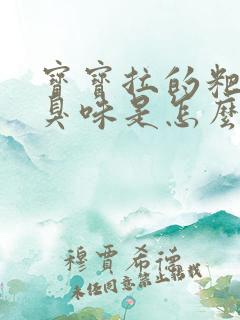 寶寶拉的粑
臭味是怎麼
穆賈希德
未經同意禁止轉載